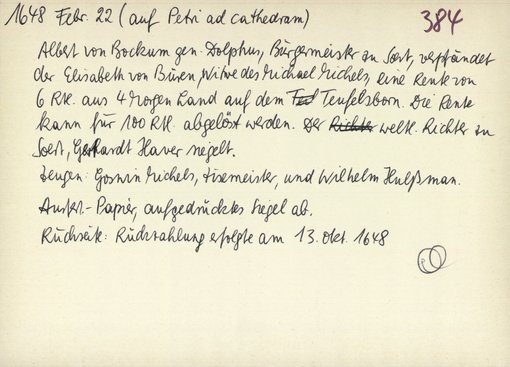 1648 Febr. 22 (auf Petri ad cathedram) 384
Albert von Bockum gen. Dolphus, Bürgermeister zu Soest, verpfändet
der Elisabeth von Büren, Witwe des Michael Michels, eine Rente von
6 Rtl. aus 4 Morgen Land auf dem Teufelsborn. Die Rente
kann für 100 Rtl. abgelöst werden. Der Richter weltl. Richter zu
Soest, Gerhardt Haver siegelt.
Zeugen: Goswin Michels, Zisemeister, und Wilhelm Hulßman.
Ausfert.- Papier, aufgedrücktes Siegel ab.
Rückseite: Rückzahlung erfolgte am 13. Okt. 1648